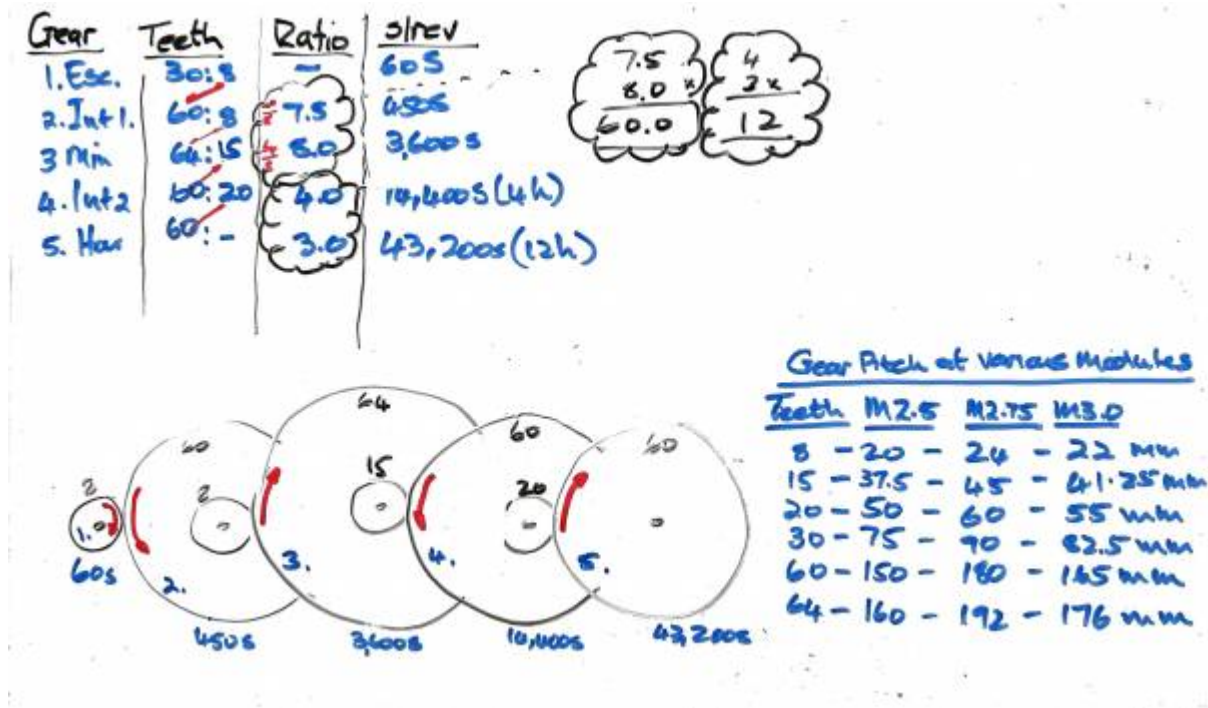 Gear Teeth Ratio s/rev
1. Esc. 30:8 - 60S
2. Int 1. 60:8 7.5 450S
3 Min 64:15 8.0 3,600s
4. Int2 60:20 4.0 14,400S (4h)
5. Hour 60:- 3.0 43,200s (12h)
7.5
8.0 x
60.0
4
3x
12
64
60
60
60
8
8
15
20
1.
2.
3.
4.
5.
60s
450s
3,600s
14,400s
43,200s
Gear Pitch at various Modules
Teeth M2.5 M2.75 M3.0
8 - 20 - 24 - 22 mm
15 - 37.5 - 45 - 41.25 mm
20 - 50 - 60 - 55 mm
30 - 75 - 90 - 82.5 mm
60 - 150 - 180 - 165 mm
64 - 160 - 192 - 176 mm